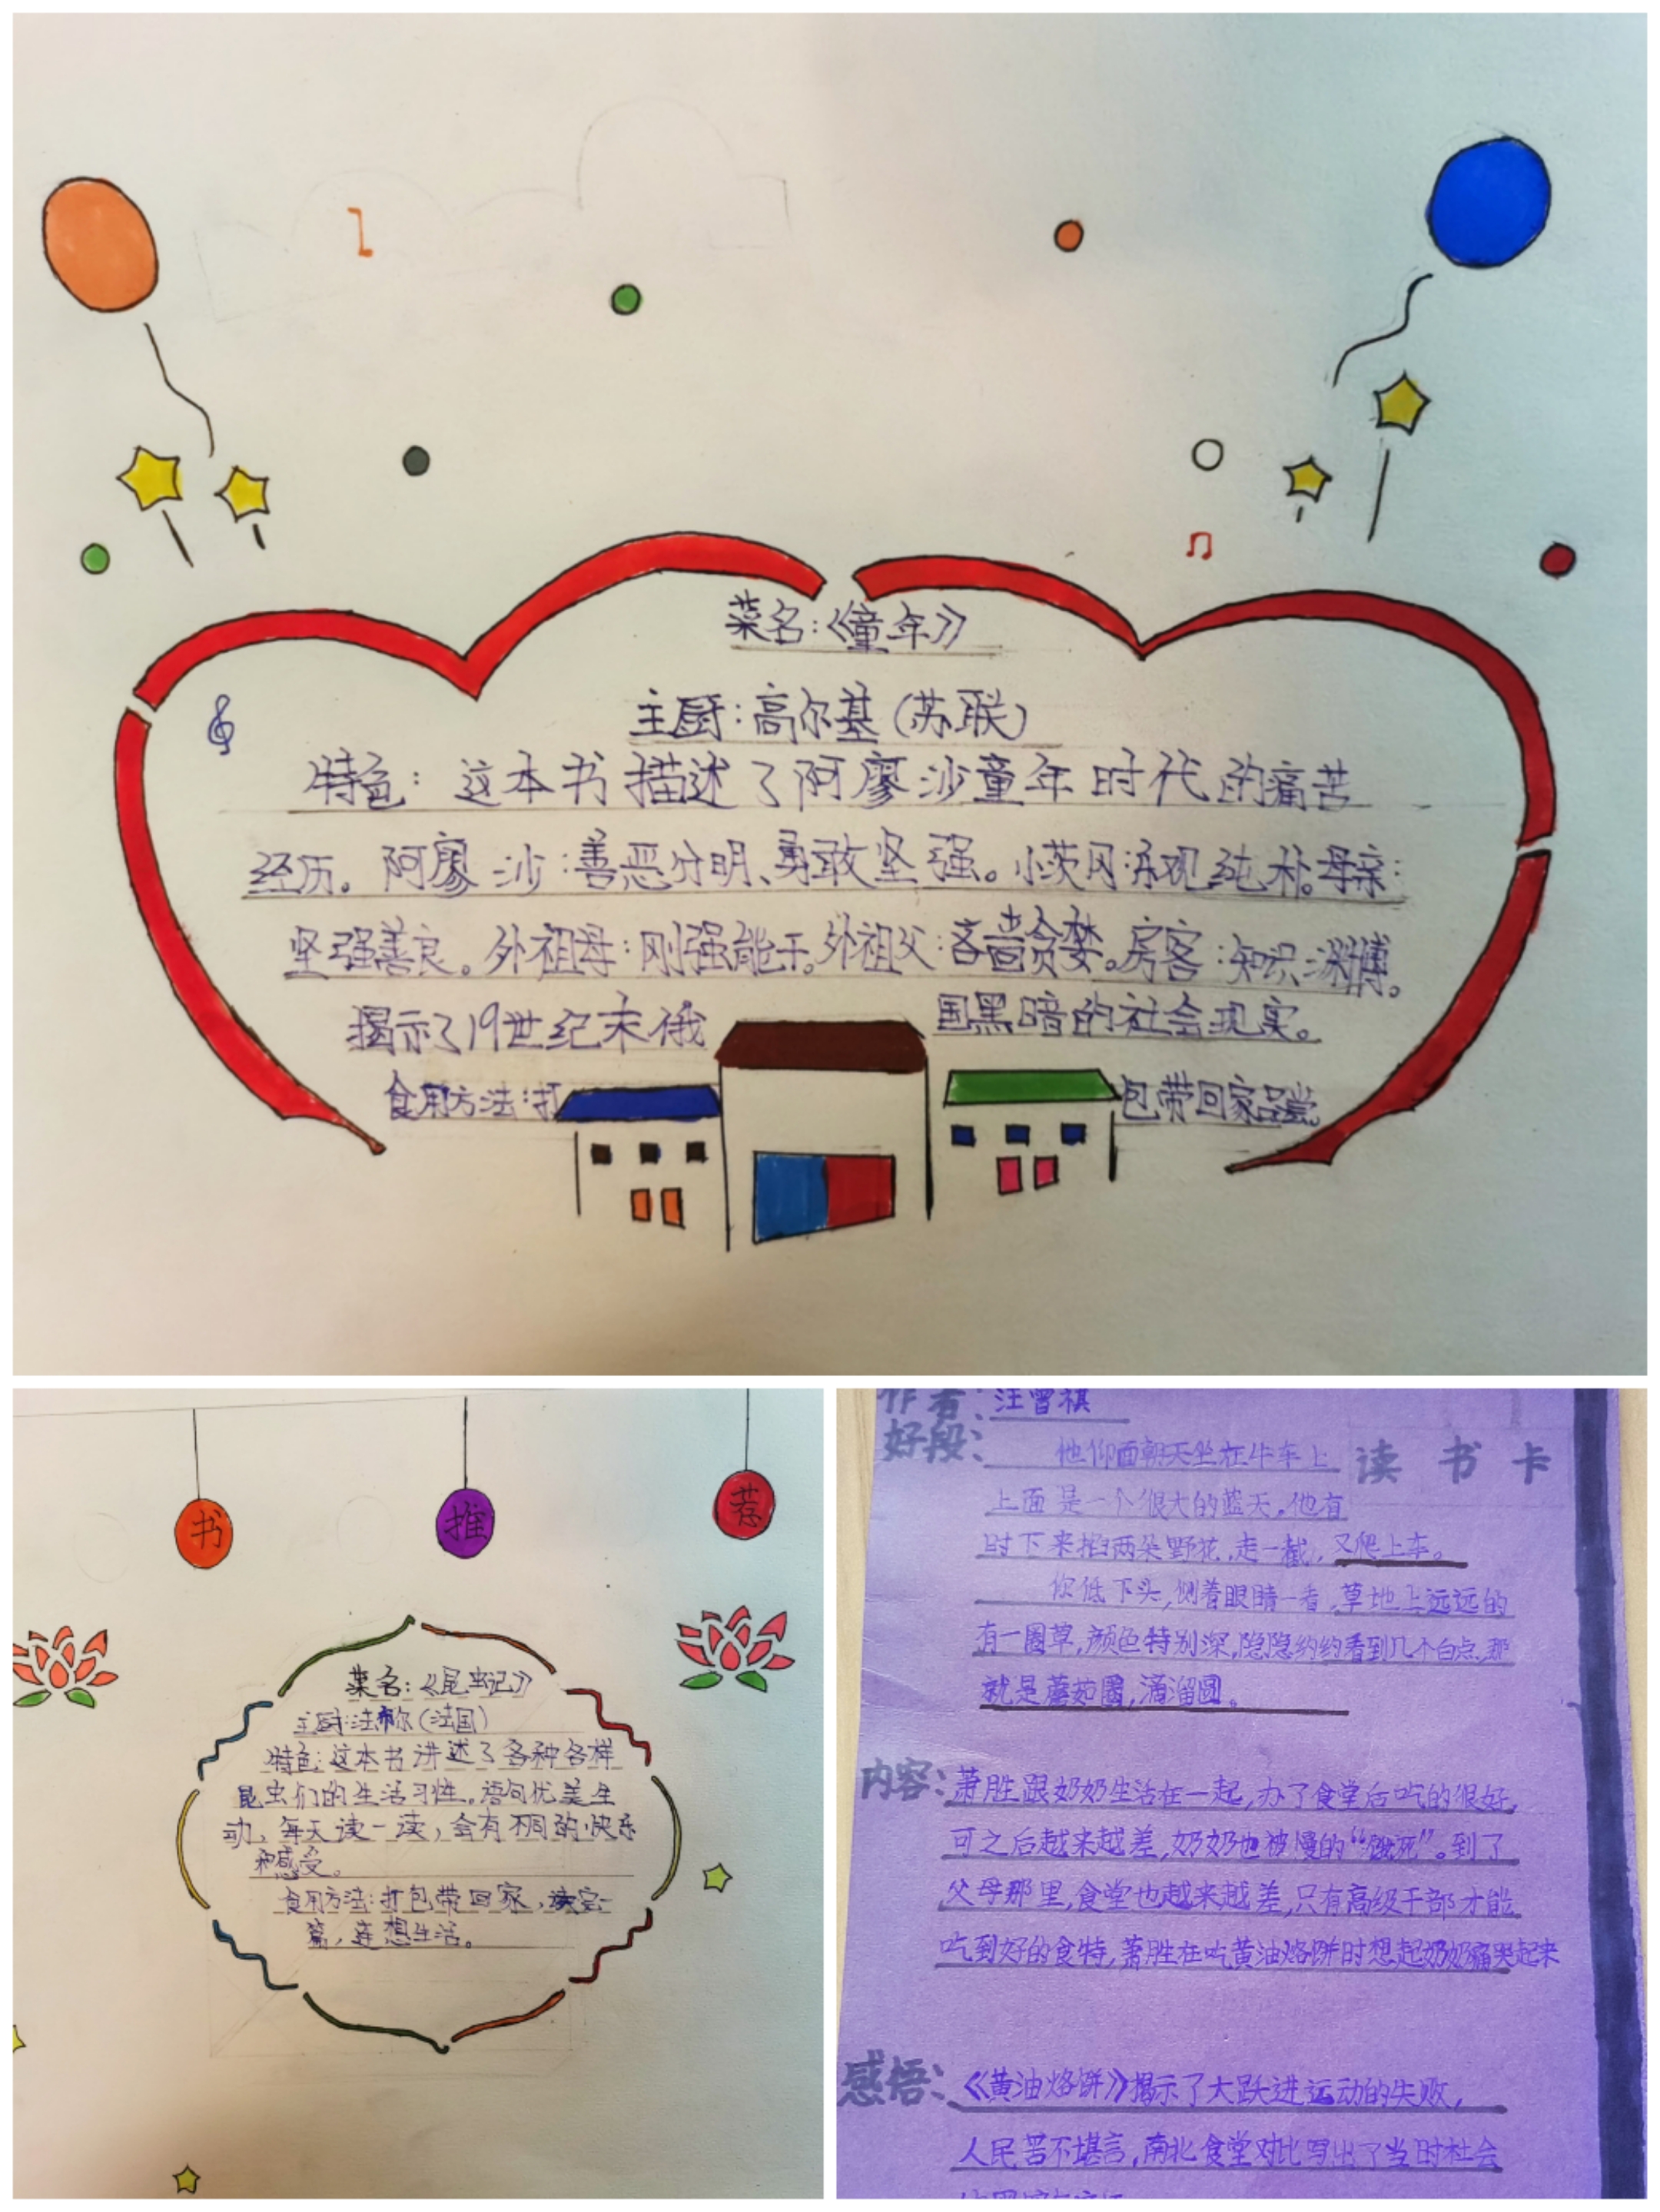 菜名:《童年》
主厨:高尔基(苏联)
特色:这本书描述了阿廖沙童年时代的痛苦
经历。阿廖沙:善恶分明、勇敢坚强。小茨冈:乐观纯朴。母亲:
坚强善良。外祖母:刚强能干。外祖父:吝啬贪婪。房客:知识渊博。
揭示了19世纪末俄国黑暗的社会现实。
食用方法:打包带回家品尝。
书 推 荐
菜名:《昆虫记》
主厨:法布尔(法国)
特色:这本书讲述了各种各样
昆虫们的生活习性。语句优美生
动,每天读一读,会有不同的快乐
和感受。
食用方法:打包带回家,读完一
篇,连想生活。
作者:汪曾祺
读书卡
好段:他仰面朝天坐在牛车上
上面是一个很大的蓝天。他有
时下来掐两朵野花,走一截,又爬上车。
你低下头,侧着眼睛一看,草地上远远的
有一圈草,颜色特别深,隐隐约约看到几个白点,那
就是蘑菇圈,滴溜圆。
内容:萧胜跟奶奶生活在一起,办了食堂后吃的很好,
可之后越来越差,奶奶也被慢的“饿死”。到了
父母那里,食堂也越来越差,只有高级干部才能
吃到好的食特,萧胜在吃黄油烙饼时想起奶奶痛哭起来
感悟:《黄油烙饼》揭示了大跃进运动的失败,
人民苦不堪言,南北食堂对比写出了当时社会